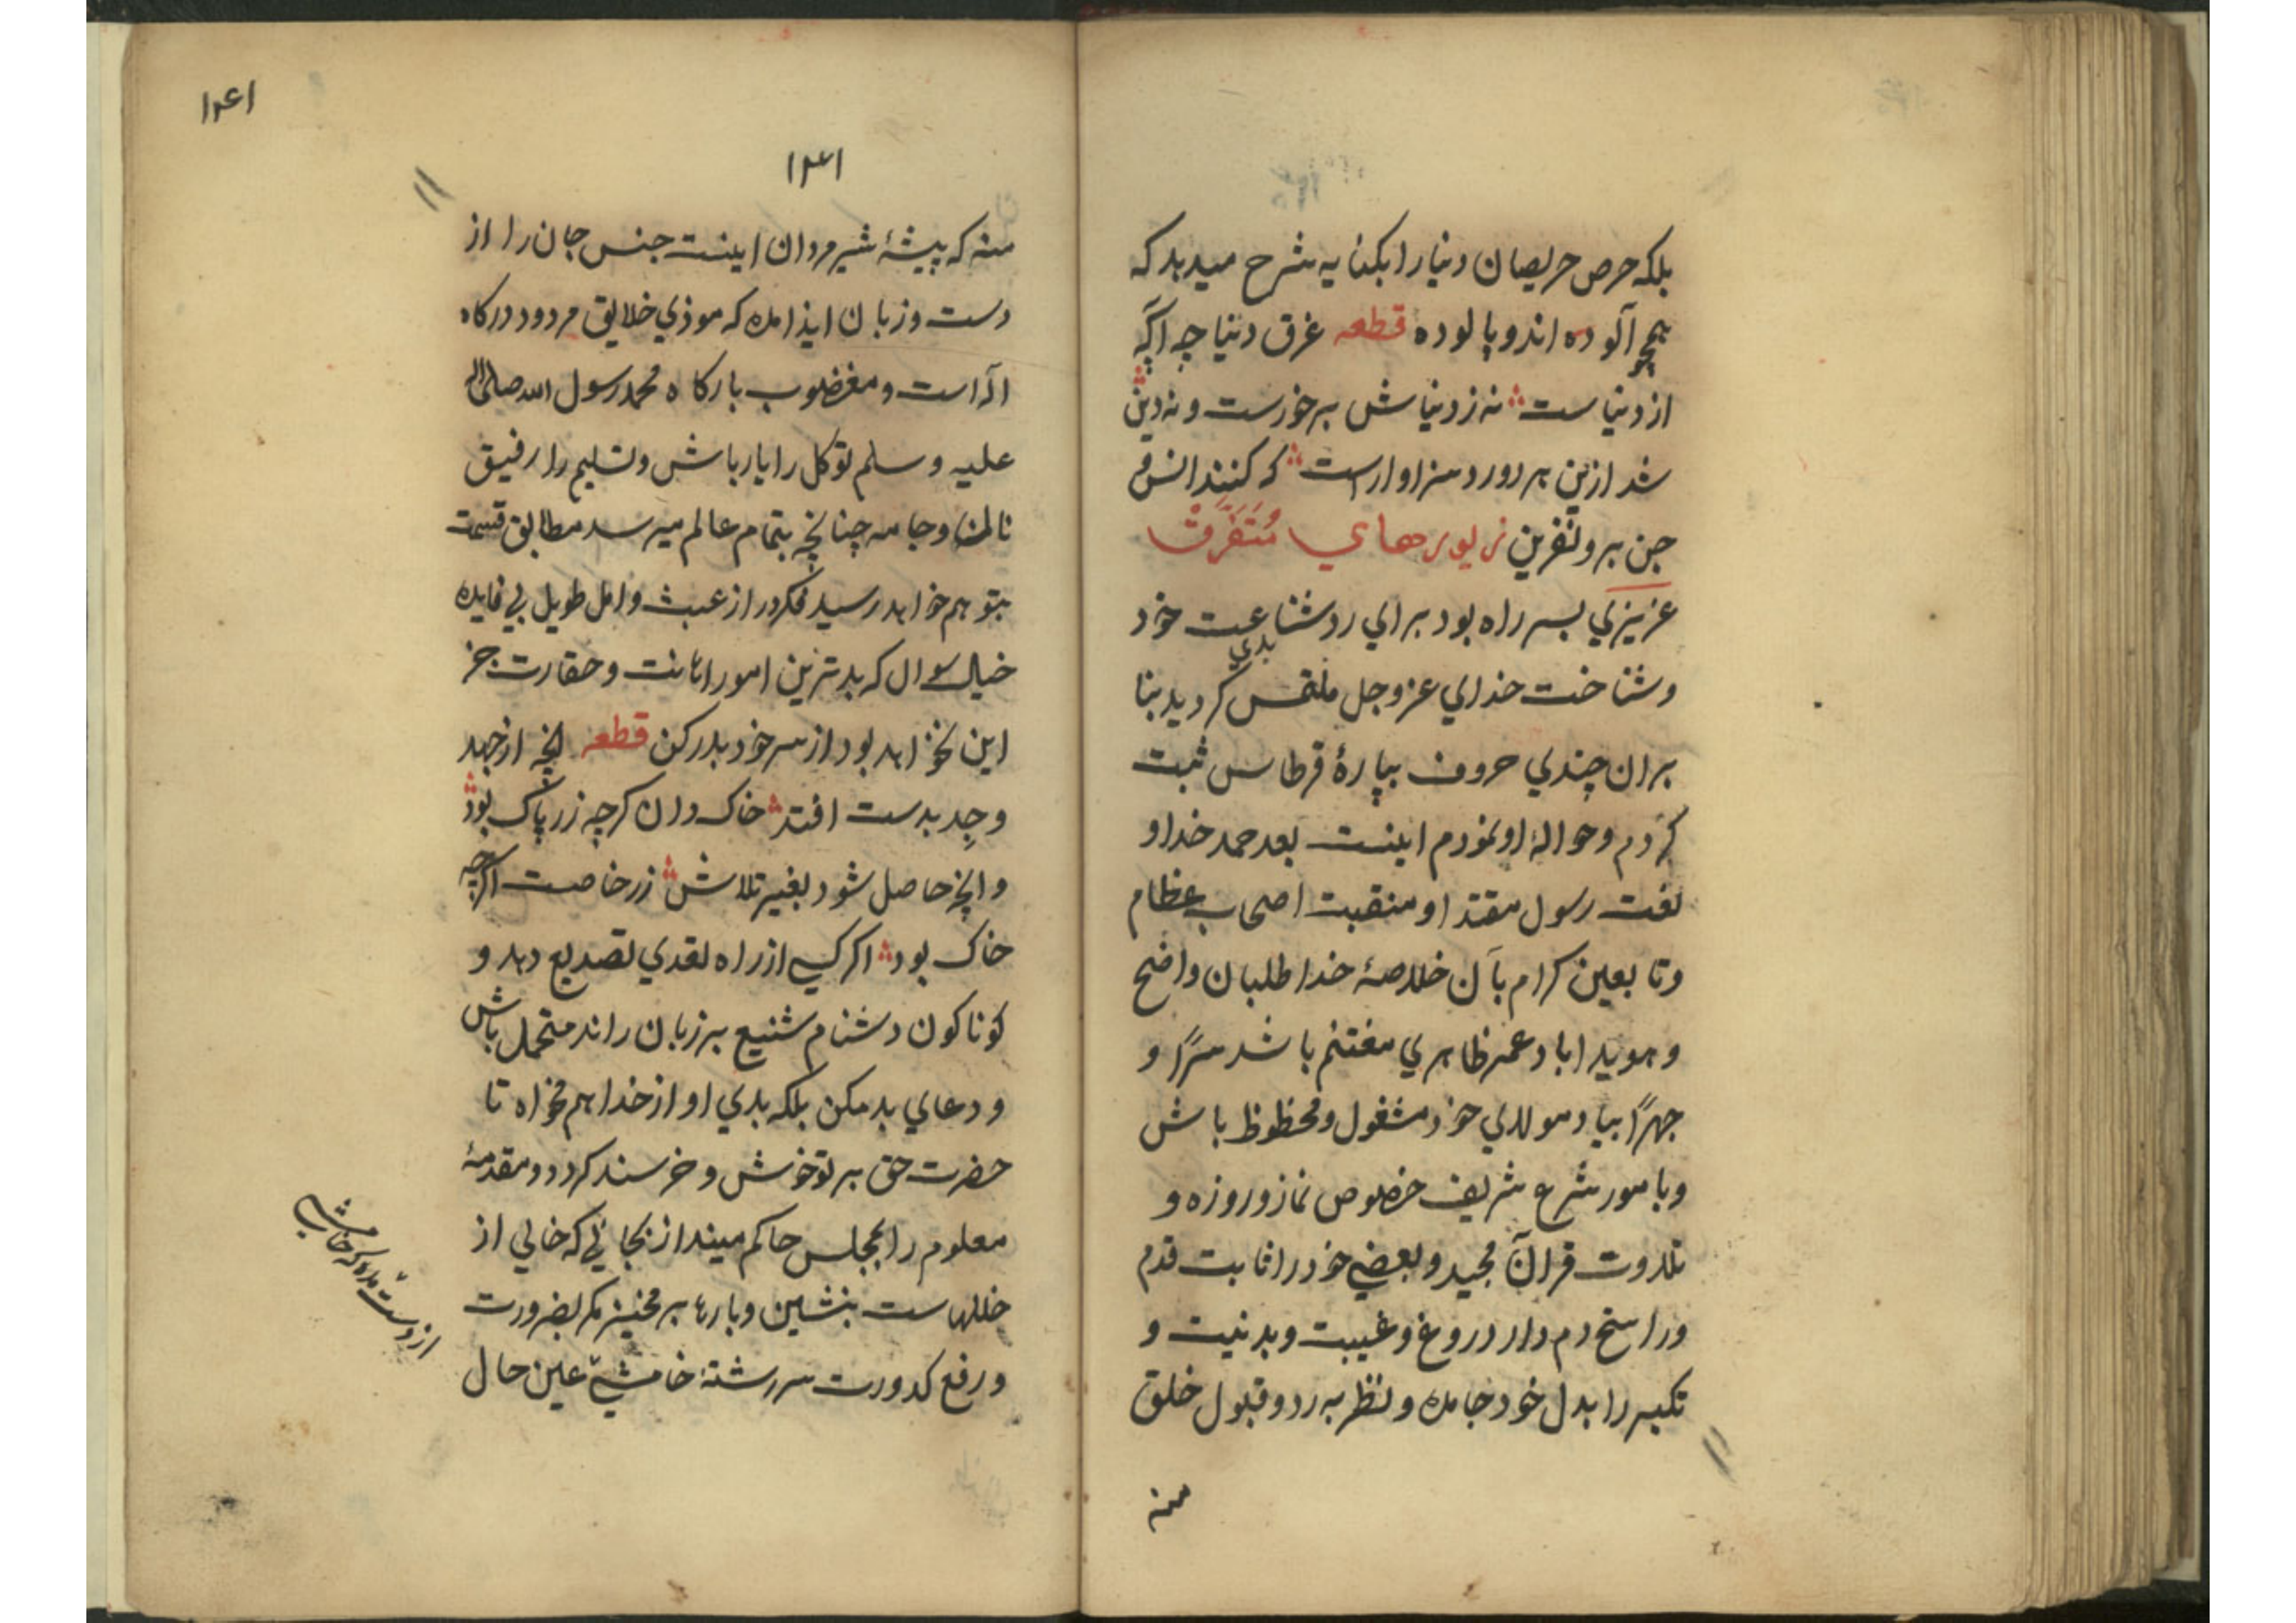 بلکه حرص حریصان دنیا را بکنایه شرح میدهد که
بهیچ آلوده اند و پالوده قطعه غرق دنیا چه آگه
از دنیاست نه ز دنیاش برخورست و نه دین
شد ازین هر دو رد سزاوارست که کنند انس و
جن برو نفرین زیورهاي متفرق
عزیزي بسر راه بود براي رد شناعت خود
بدي
و شناخت خداي عز و جل ملتمس کردید بنا
بران چندي حروف بپارۀ قرطاس ثبت
کردم و حوالۀ او نمودم اینست بعد حمد خدا و
نعت رسول مقتدا و منقبت اصحاب عظام
و تابعین کرام بآن خلاصۀ خدا طلبان واضح
و هویدا باد عمر ظاهري مغتنم باشد سرًا و
جهرًا بیاد مولاي خود مشغول و محظوظ باش
و بامور شرع شریف خصوص نماز و روزه و
تلاوت قرآن مجید و بعضي خود را ثابت قدم
و راسخ دم دار دروغ و غیبت و بدنیت و
تکبر را بدل خود جا مده و نظر به رد و قبول خلق
منه
۱۲۶۱
۱۲۶۱
منه که پیشۀ شیر مردان اینست جنس جان را از
دست و زبان ایذا مده که موذي خلایق مردود درکاه
اله است و مغضوب بارکاه محمد رسول الله صلی الله
علیه و سلم توکل را یار باش و تسلیم را رفیق
نان و جامه چنانچه بتمام عالم میرسد مطابق قسمت
بتو هم خواهد رسید فکر دراز عبث و امل طویل بي فایده
خیال سوال که بدترین امور اهانت و حقارت جز
این نخواهد بود از سر خود بدر کن قطعه انچه از جهد
و جد بدست افتد خاک دان کرچه زر پاک بود
و انچه حاصل شود بغیر تلاش زر خاصست اکرچه
خاک بود اکر کسي از راه تعدي تصدیع دهد و
کوناکون دشنام شنیع بر زبان راند متحمل باش
و دعاي بد مکن بلکه بدي او از خدا هم مخواه تا
حضرت حق بر تو خوش و خرسند کردد و مقدمۀ
معلوم را بمجلس حاکم مینداز بجائي که خالي از
خللهاست بنشین و بارها برمخیز مکر بضرورت
و رفع کدورت سررشتۀ خامشي عین حال
از دست مده که خامشي